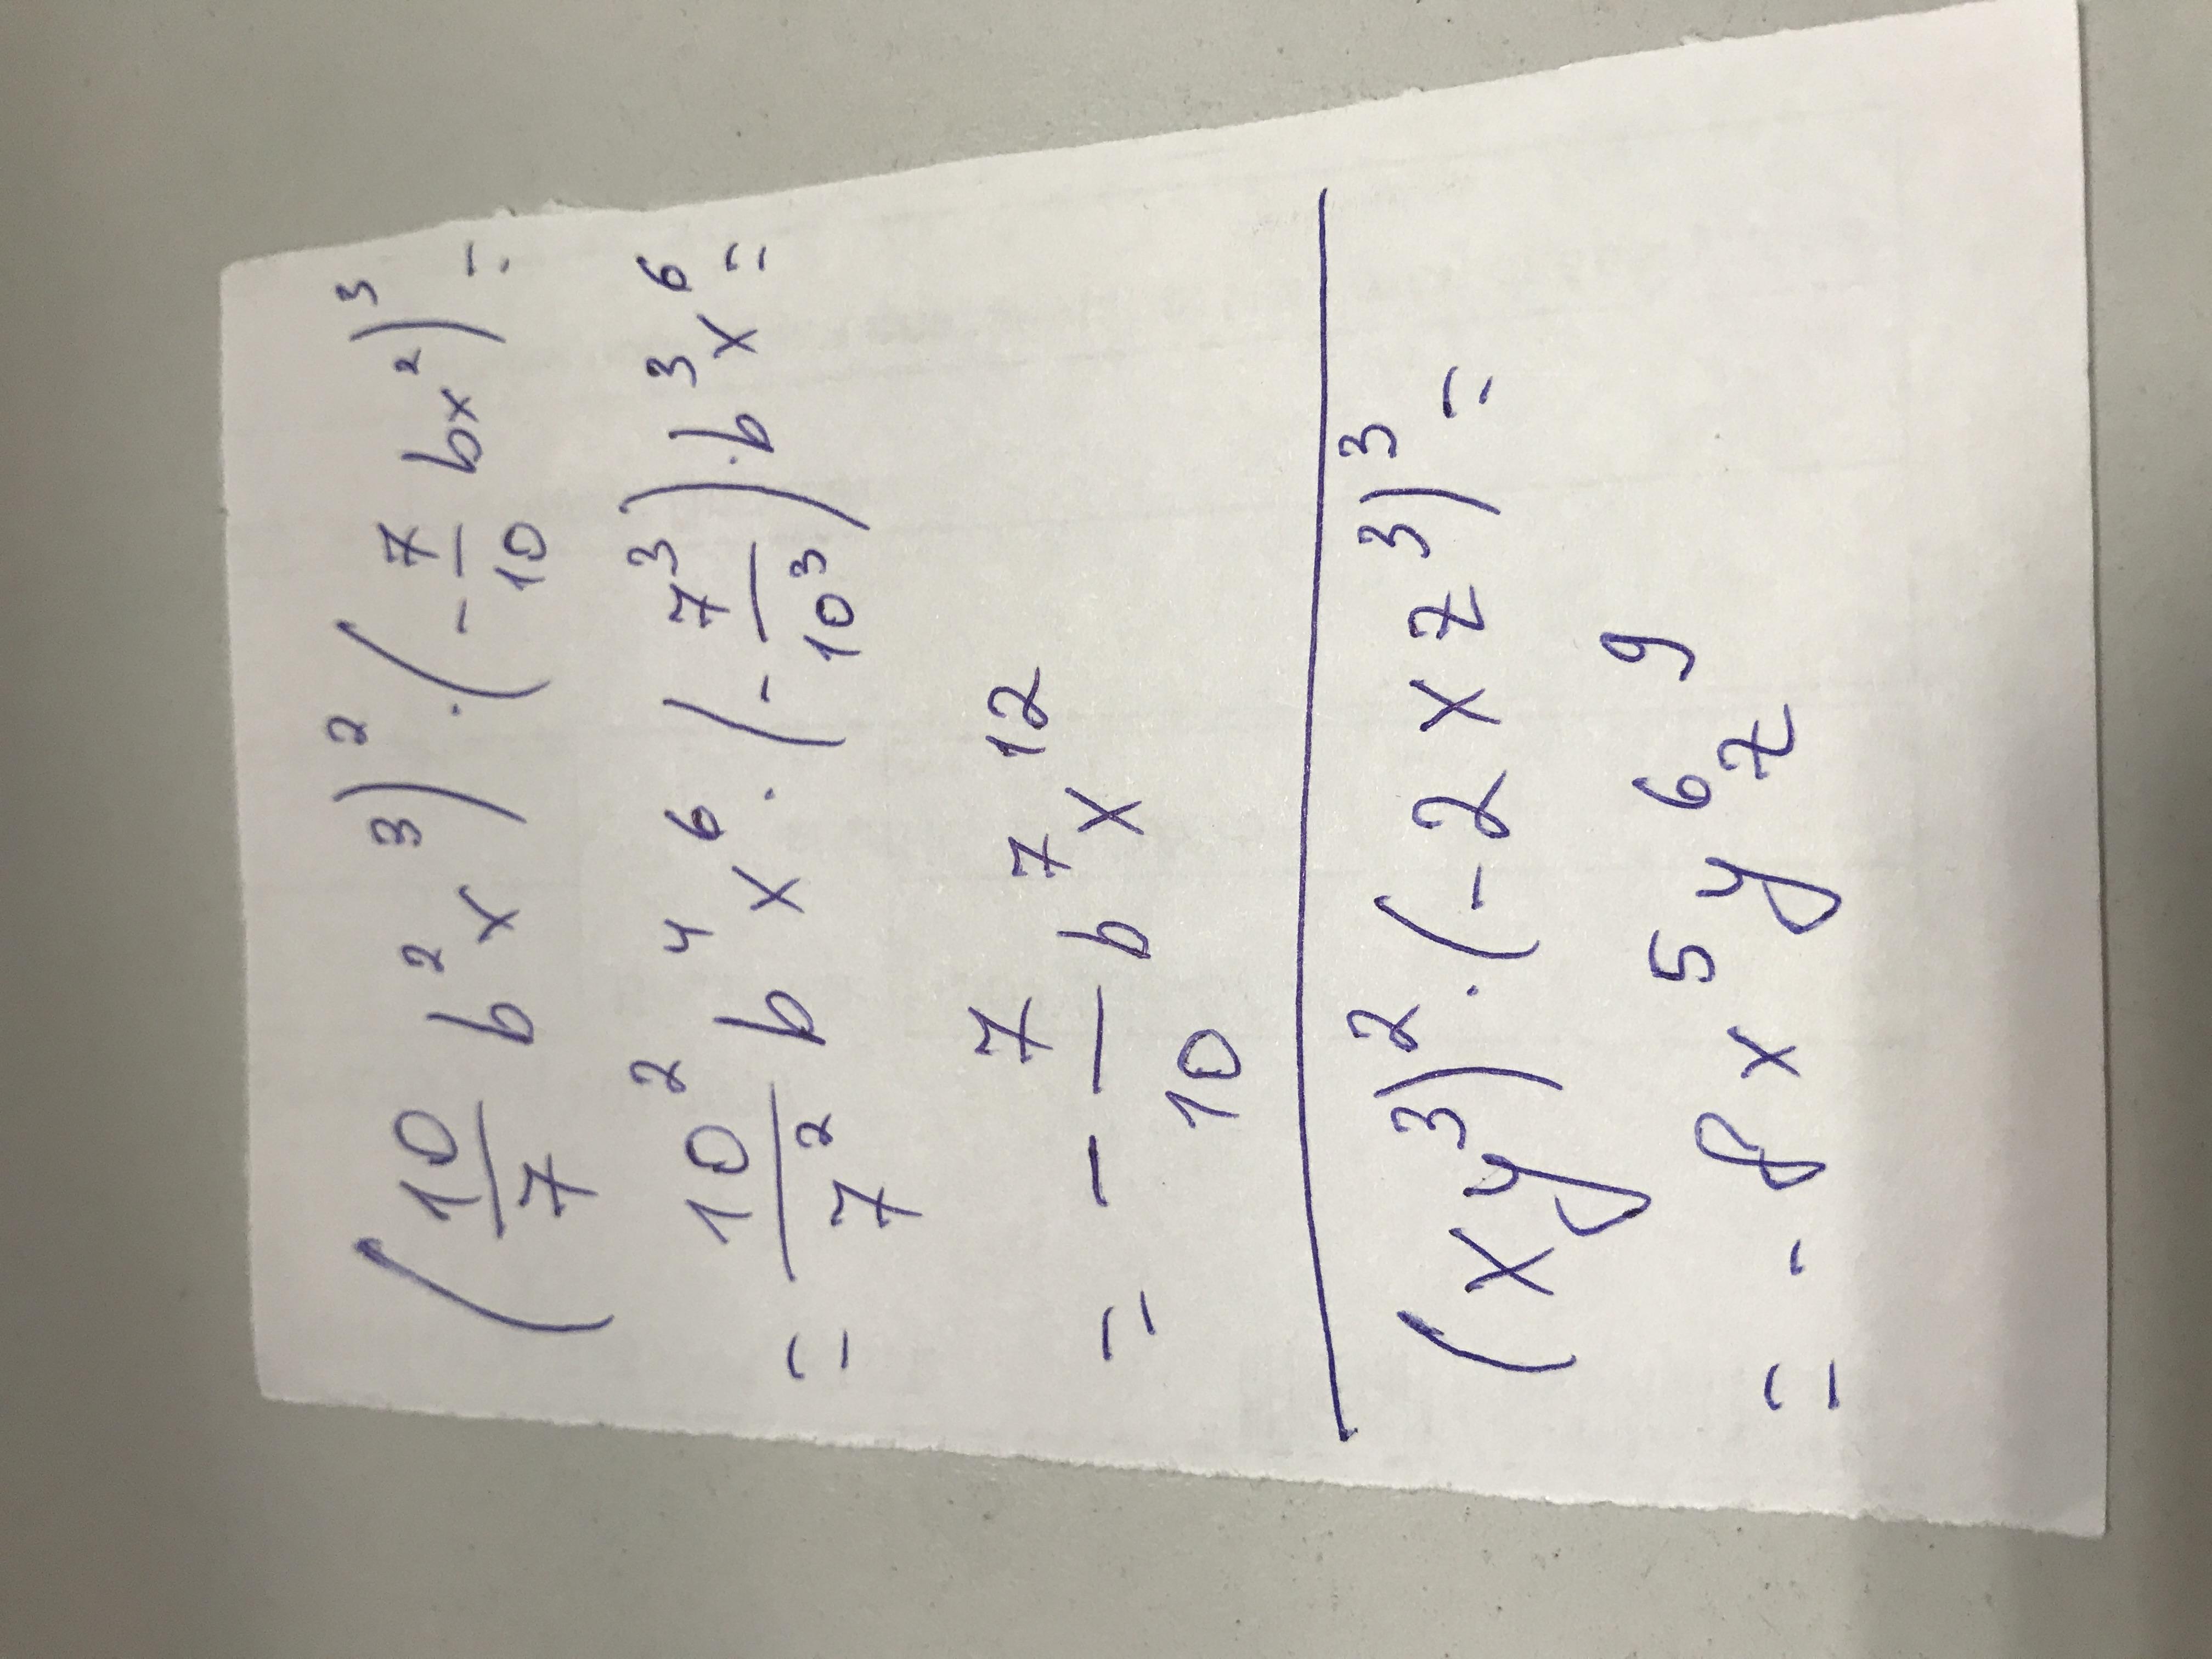 (10/7 b²x³)² · (-7/10 bx²)³ =
= 10²/7² b⁴x⁶ · (-7³/10³) · b³x⁶ =
= -7/10 b⁷x¹²
(xy³)² · (-2xz³)³ =
= -8x⁵y⁶z⁹